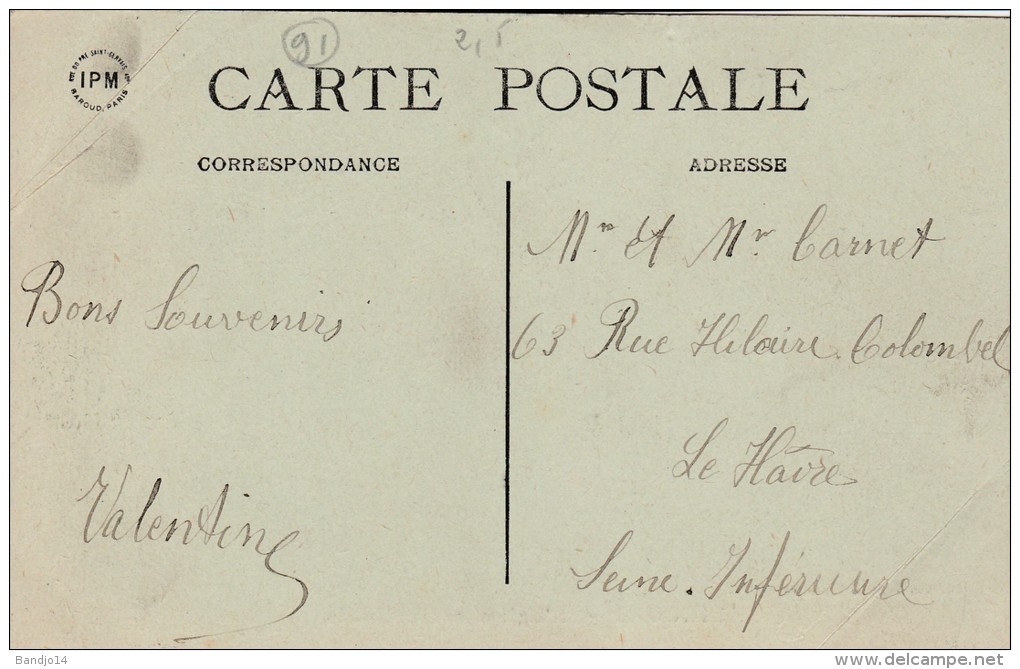 91
2,5
IPM
BAROUD, PARIS
CARTE POSTALE
CORRESPONDANCE
ADRESSE
Bons Souvenirs
Valentine
Mr et Mr Carnet
63 Rue Hilaire. Colombel
Le Hâvre
Seine. Inférieure
Bandjo14
www.delcampe.net